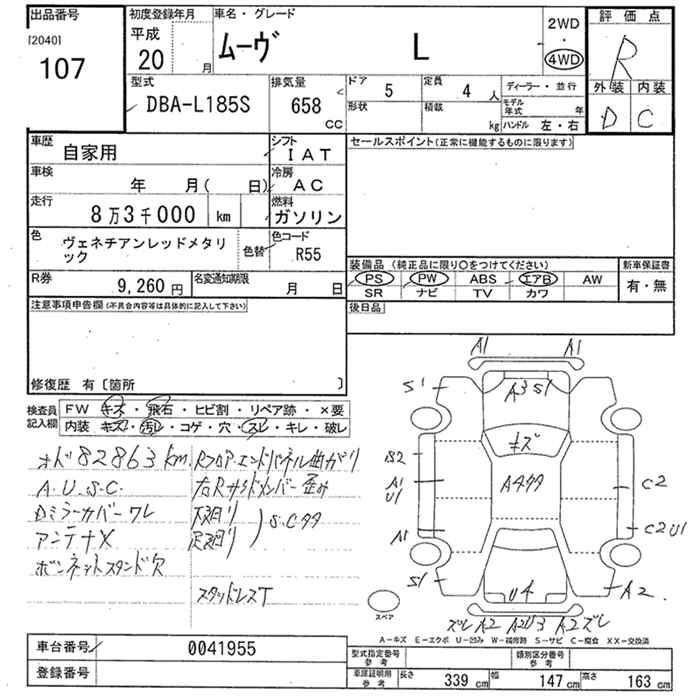 出品番号
[2040]
107
初度登録年月
平成
20 月
車名・グレード
ムーヴ L
2WD
・
4WD
評価点
R
外装 内装
D C
型式
DBA-L185S
排気量
658
CC
ドア
5
定員
4 人
形状
積載
kg
ディーラー・並行
モデル年式 年
ハンドル 左・右
車歴
自家用
シフト
IAT
車検
年 月( 日)
冷房
AC
走行
8万3千000 km
燃料
ガソリン
色
ヴェネチアンレッドメタリック
色替
色コード
R55
R券
9,260円
名変通知期限
月 日
セールスポイント(正常に機能するものに限ります)
装備品 (純正品に限り○をつけてください)
PS PW ABS エアB AW
SR ナビ TV カワ
新車保証書
有・無
後日品
注意事項申告欄(不具合内容等は具体的に記入して下さい)
修復歴 有〔箇所 〕
検査員記入欄
FW キズ・飛石・ヒビ割・リペア跡・×要
内装 キズ・汚レ・コゲ・穴・スレ・キレ・破レ
オド82863km
A.U.S.C.
Dミラーカバーワレ
アンテナX
ボンネットスタンド欠
Rフロア・エンドパネル曲がり
右Rサイドメンバー歪み
下廻り
足廻り
S.C
スタッドレスT
A1 A1
S1 A3S1 S1
キズ
B2
A1
U1
A1
C2
C2U1
S1 U4 A2
ズレA2 A2U3 A2ズレ
スペア
A−キズ E−エクボ U−凹み W−補修跡 S−サビ C−腐食 XX−交換済
車台番号
0041955
登録番号
型式指定番号
参考
類別区分番号
参考
車庫証明用
参考
長さ 339 cm 幅 147 cm 高さ 163 cm